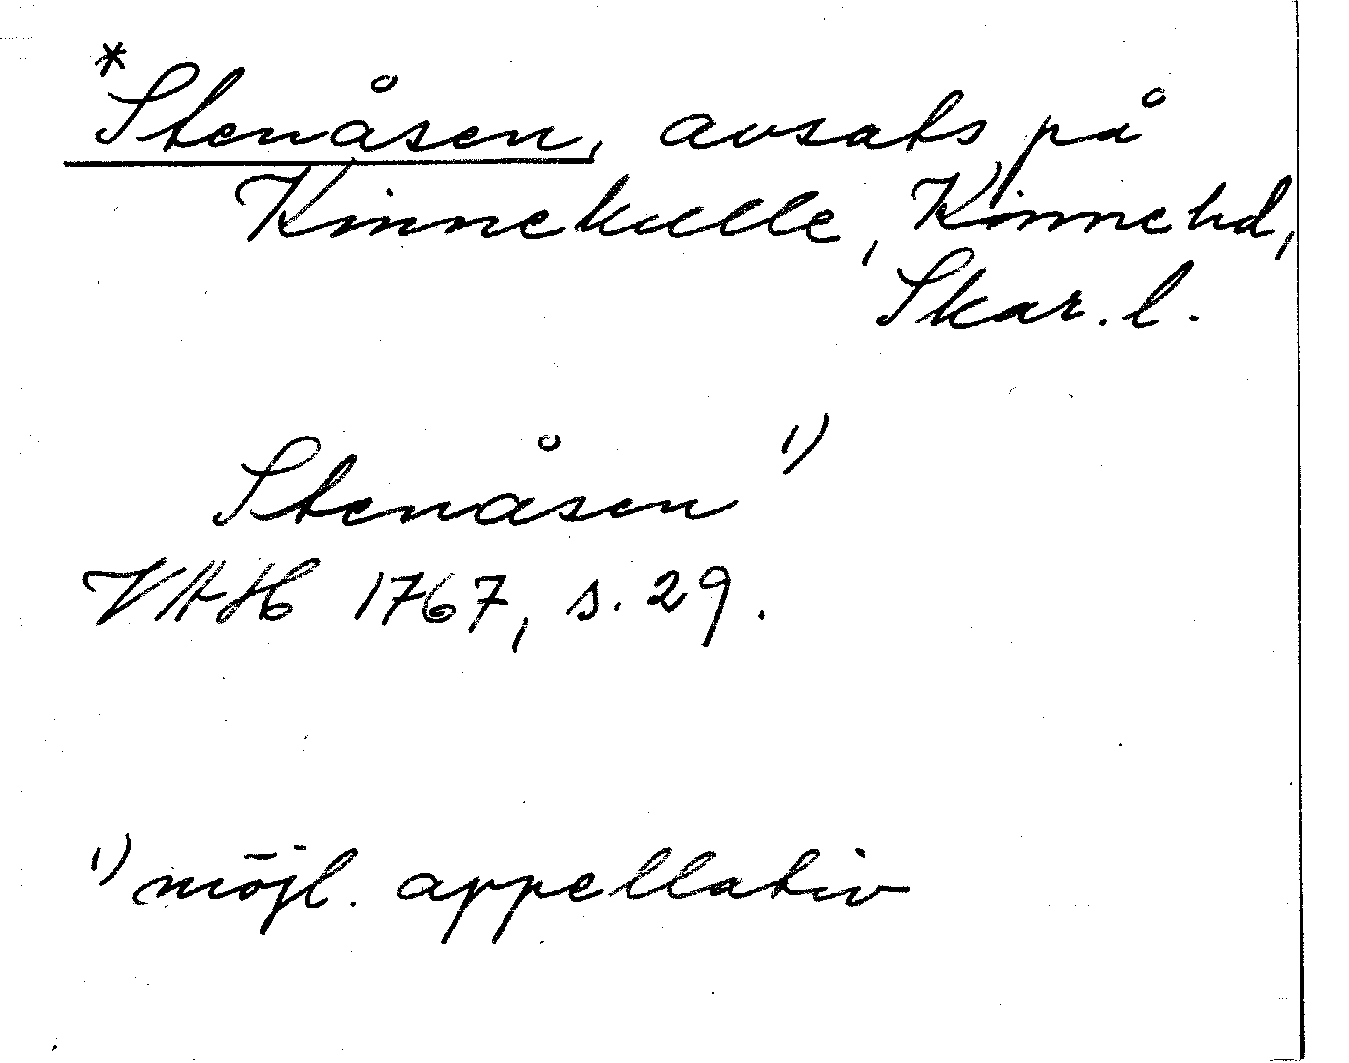 *Stenåsen, avsats på
Kinnekulle, Kinne hd,
Skar. l.
Stenåsen 1)
VAH 1767, s. 29.
1) möjl. appellativ